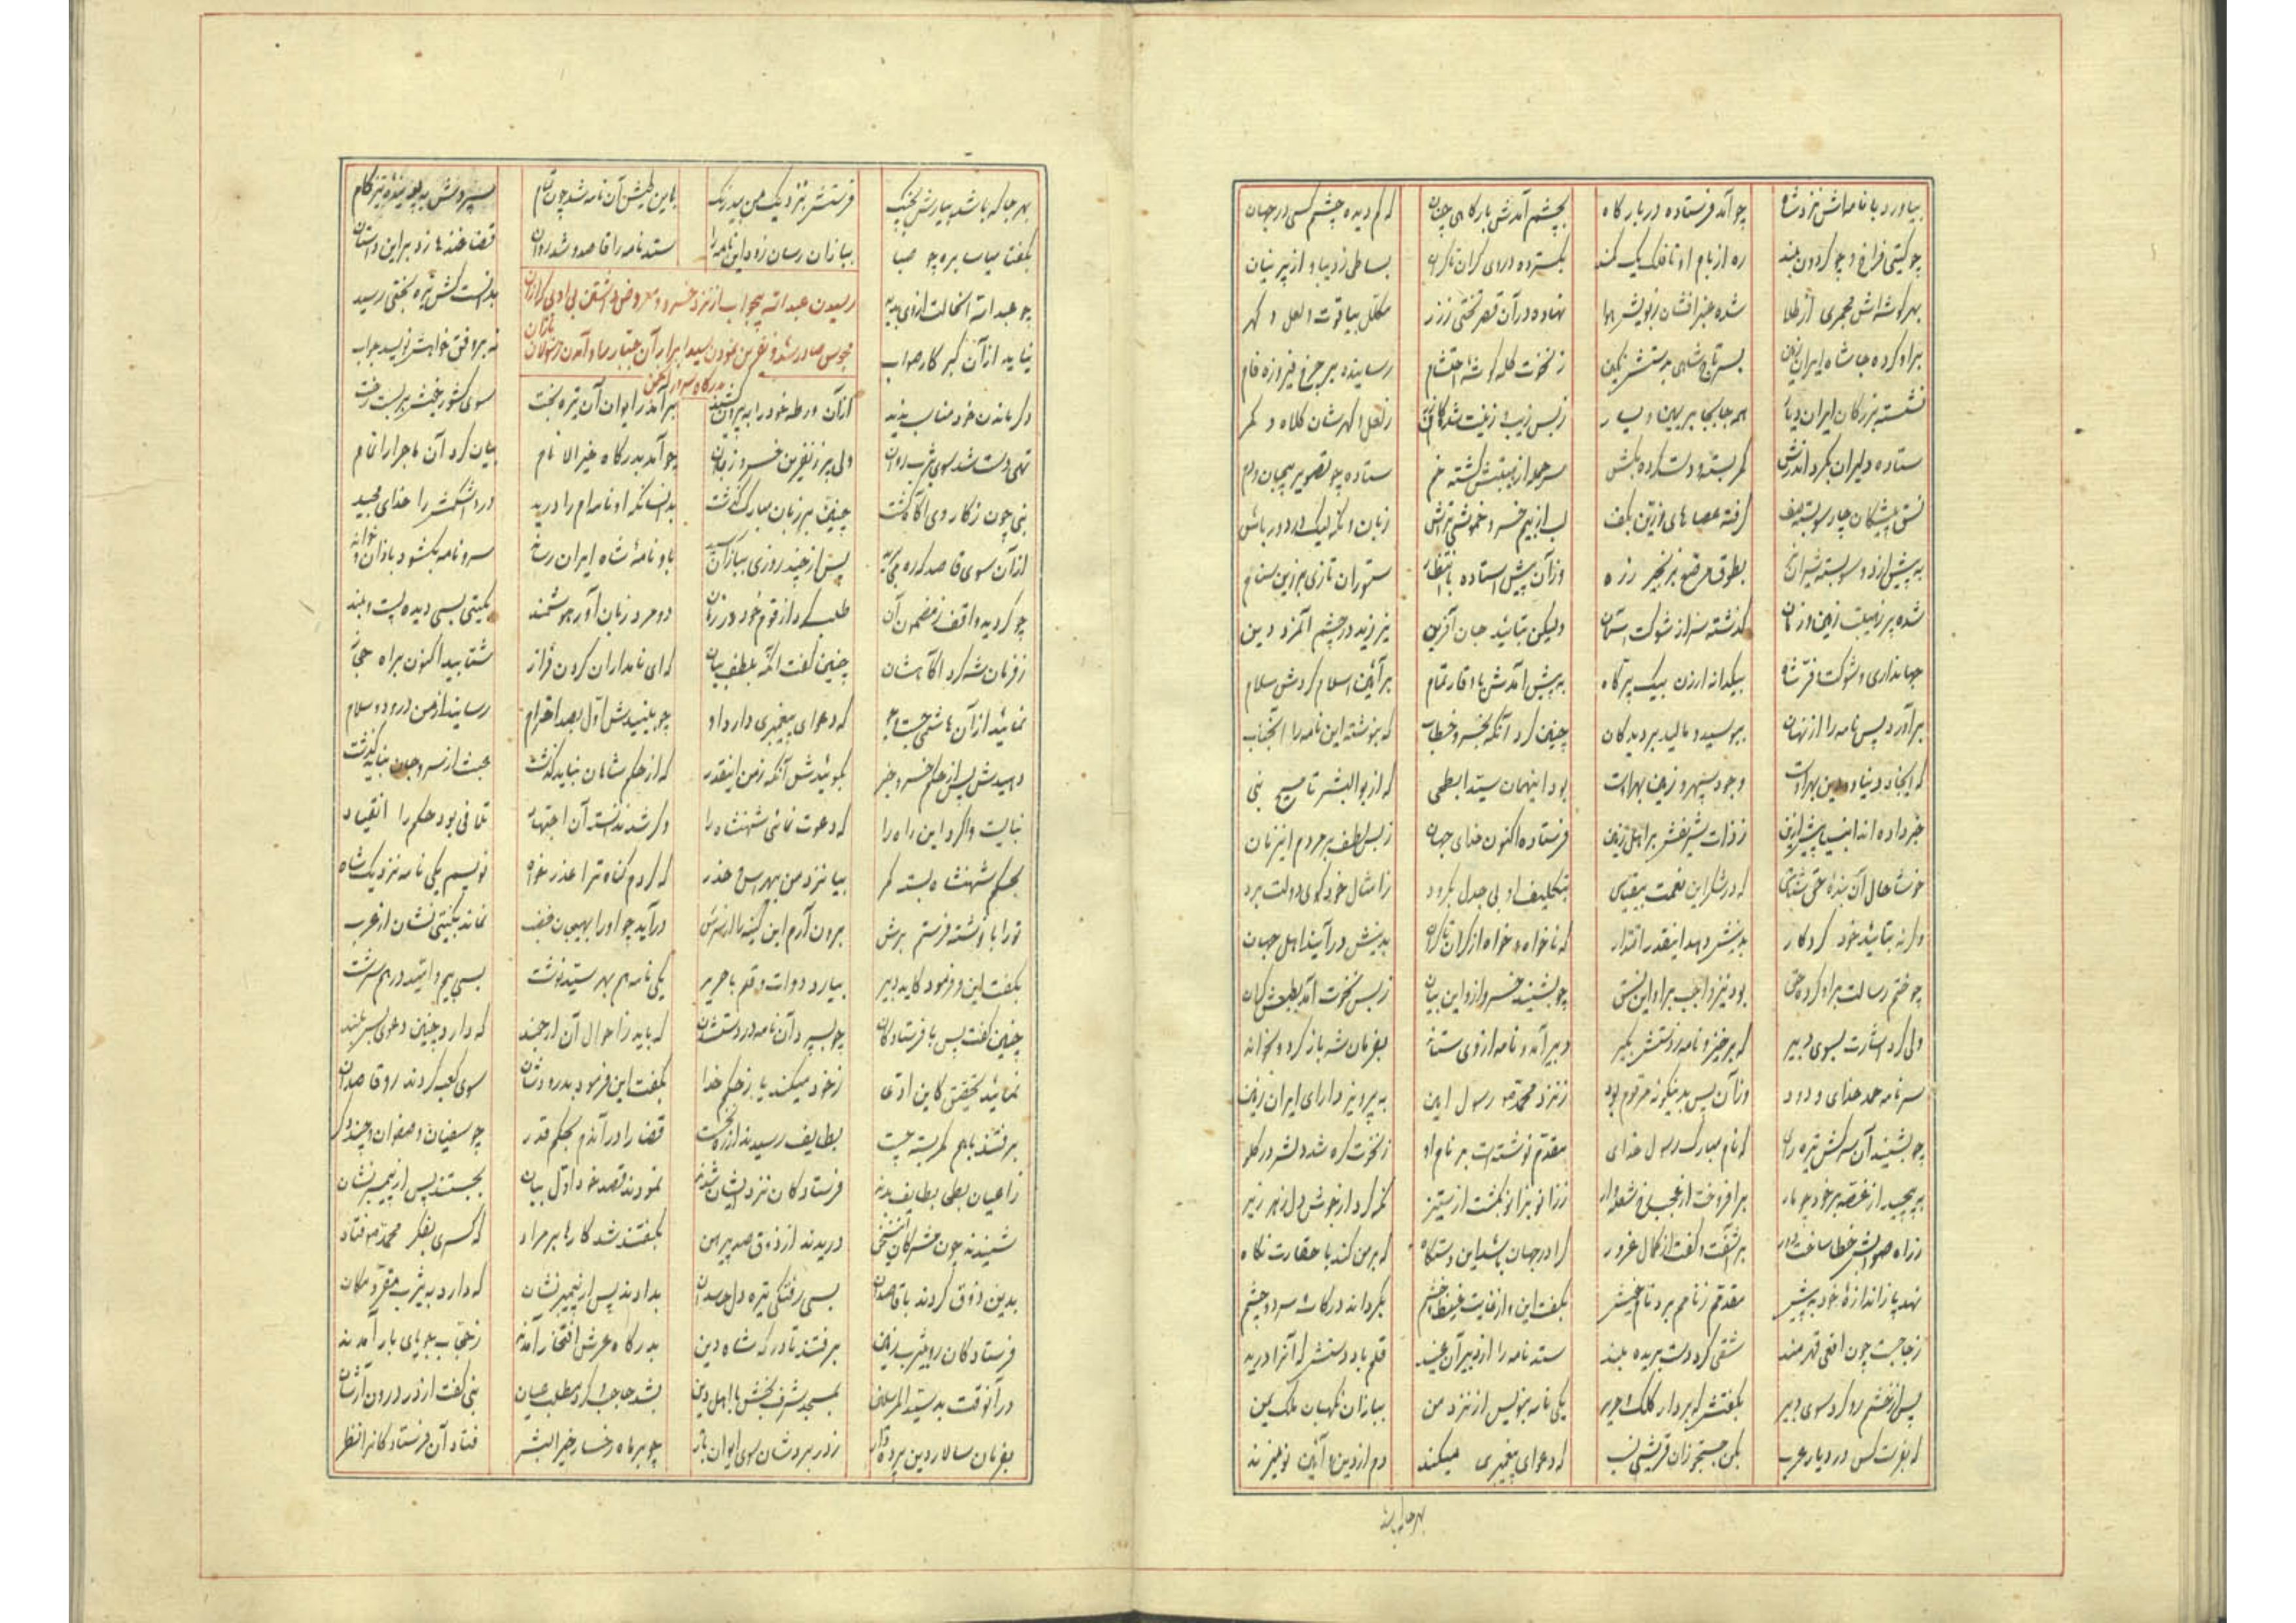 بیاورد با نامه‌اش نزد شاه چو آمد فرستاده در بارگاه بچشم آمدش بارگاهی چنان که کم دیده چشم کسی در جهان
چو گیتی فراخ و چو گردون بلند ره از بام او تا فلک یک کمند بگسترده در وی کران تا کران بساطی ز دیبا و از پرنیان
بهر گوشه‌اش مجمری از طلا شده عنبرافشان ز بویش هوا نهاده در آن قصر تختی ز زر مکلل بیاقوت و لعل و گهر
بر او کرده جا شاه ایران زمین بسر تاج شاهی بدستش نگین ز نخوت کله گوشهٔ احتشام رسانیده بر چرخ فیروزه فام
نشسته بزرگان ایران دیار همه جابجا بر یمین و یسار ز بس زیب و زینت ز لعل و گهرشان کلاه و کمر
ستاده دلیران بگرد اندرش کمر بسته و دست کرده بکش سر جمله از هیبتش گشته خم ستاده چو تصویر بیجان و دم
نسق پیشگان چار سو بسته صف گرفته عصاهای زرین بکف لب از بیم خسرو خموشی زبان و نگه لیک در دور باش
به پیش از دو سو بسته شیران بطوق مرصع بزنجیر زره وزان پیش استاده با انتظار ستوران تازی بزرین ستام
شده پر ز هیبت زمین و زمان گذشته سر از شوکت استان ولیکن بتأیید جان آفرین نیرزید در چشم آنمرد دین
جهانداری و شوکت و فر شاه بیکدانه ارزن بیک پر کاه به پیش آمدش با وقار تمام بر آئین اسلام کردش سلام
برآورد پس نامه را از نهان ببوسید و مالید بر دیدگان چنین کرد آنگه بخسرو خطاب که بنوشته این نامه را آنجناب
که ایجاد دنیا و دین بهر اوست وجود سپهر و زمین بهر اوست بود اینهمان سید ابطحی که از بوالبشر تا مسیح نبی
خبر داده‌اند انبیا پیش ازین ز ذات شریفش بر اهل زمین فرستاده اکنون خدای جهان ز بس لطف بر مردم این زمان
خوشا حال آن بنده حق شناس که در شکر این نعمت بیقیاس بتکلیف او بی جدل بگرود ز امثال خود گوی دولت برد
وگرنه بتأیید خود کردگار بدینش دهد اینقدر اقتدار که ناخواه و خواه از کران تا کران بدینش درآیند اهل جهان
چو ختم رسالت بر او کرد حق بود نیز واجب بر او این نسق چو بشنید خسرو ازو این بیان ز بس نخوت آمد بطبعش گران
ولی کرد اشارت بسوی دبیر که برخیز و نامه ز دستش بگیر دبیر آمد و نامه از وی ستاند بفرمان شه باز کرد و بخواند
سر نامه حمد خدای ودود وزان پس بدینگونه مرقوم بود ز نزد محمد رسول امین به پرویز دارای ایران زمین
چو بشنید آن سرکش تیره رای که نام مبارک رسول خدای مقدم نوشته است بر نام او ز نخوت گره شد نفس در گلو
بپیچید از غصه بر خود چو مار برافروخت از عجب رخ شعله‌وار ز زانو بزانو نکشت از ستیز نگه کرد از خوش دل زهر ریز
ز راه صوابش خطا ساخت دور برآشفت و گفت از کمال غرور کرا در جهان باشد این دستگاه که بر من کند با حقارت نگاه
نهد پا ز اندازهٔ خود به پیش مقدم ز نامم برد نام خویش بگفت این و از غایت غیظ و خشم بگرداند در کاسه سر دو چشم
ز جا جست چون افعی قهرمند شقی کرد دست بریده بلند ستد نامه را از دبیر آن عنید قلم باد دستش که آنرا درید
پس از خشم رو کرد سوی دبیر بگفتش که بردار کلک و حریر یکی نامه بنویس از نزد من ببازان نگهبان ملک یمن
که بفرست کس در دیار عرب بکن جستجو زان قریشی نسب که دعوای پیغمبری میکند دم از دین و آئین نو میزند
بهر جا که باشد
بهر جا که باشد بیارش بچنگ فرستش بنزدیک من بیدرنگ باین طیش آن نامه شد چون تمام سپردش به تیزگام
بگفتا میاسا برو چو صبا ببازان رسان زود این نامه را ستد نامه را قاصد و شد روان قضا خنده‌ها زد بر این داستان
چو عبدالله آنحالت از وی بدید بدانست کش تیره بختی رسید
رسیدن عبدالله بیجواب از نزد خسرو و معروض داشتن بی ادبی که از آن
نیاید از آن گبر کار صواب نه بر وفق خواهش نویسد جواب
مجوسی صادر شده و نفرین نمودن سید ابرار آن جبار را و آمدن رسولان بازان
بدرگاه سرور
دگر ماندن خود مناسب ندید از آن ورطه خود را به بیرون کشید برآمد ز ایوان آن تیره بخت سوی کشور خویش بربست رخت
تهی دست شد سوی یثرب روان ولی پر ز نفرین خسرو زبان چو آمد بدرگاه خیرالانام بیان کرد آن ماجرا را تمام
نبی چون ز کار وی آگاه گشت چنین بر زبان مبارک گذشت بدانسانکه او نامه‌ام را درید درد اشکمش را خدای مجید
از آن سوی قاصد که ره می‌برید پس از چند روزی ببازان رسید باو نامهٔ شاه ایران رساند سر نامه بگشود بازان و خواند
چو گردید واقف ز مضمون آن طلب کرد از قوم خود در زمان دو مرد زبان‌آور هوشمند بگیتی بسی دیده پست و بلند
ز فرمان شه کرد آگاهشان چنین گفت آنگه بلطف بیان که ای نامداران گردن فراز شتابید اکنون براه حجاز
نمائید از آن هاشمی جستجو که دعوای پیغمبری دارد او چو بینیدش اول بصد احترام رسانید از من درود و سلام
دهیدش پس از حکم خسرو خبر بگوئیدش آنگه ز من اینقدر که از حکم شاهان نباید گذشت عبث از سر و جان نباید گذشت
نبایست وا کرد این راه را که دعوت نمائی شهنشاه را وگر شد ندانسته آن اجتهاد تلافی بود حکم را انقیاد
بحکم شهنشاه بسته کمر بیا نزد من بهراس و حذر که گردم گناه ترا عذر خواه نویسم یکی نامه نزدیک شاه
تو را با نوشته فرستم برش برون آرم این کینه را از سرش درآید چو او را بهیجان غضب نماند بگیتی نشان از عرب
بگفت این و فرمود کاید دبیر بیارد دوات و قلم با حریر یکی نامه هم بهر سید نوشت بسی بیم و امید در هم سرشت
چنین گفت پس با فرستادگان چو بسپرد آن نامه در دستشان که باید ز احوال آن ارجمند که دارد چنین دعوی سربلند
نمائید تحقیق کاین ادعا ز خود میکند یا ز حکم خدا بگفت این و فرمود بدرودشان سوی کعبه کردند رو قاصدان
برفتند با هم کمر بسته چست بطایف رسیدند از ره نخست قضا را در آندم بحکم قدر چو سفیان و صفوان و چند دگر
ز اعیان بطحی بطایف بدند فرستادگان نزد ایشان شدند نمودند قصد خود اول بیان بجستند پس از پیمبر نشان
شنیدند چون مشرکان این سخن دریدند از ذوق صد پیرهن بگفتند شد کارها بر مراد که کسری بفکر محمد فتاد
بدین ذوق کردند با قاصدان بسی رفتگی تیره دل حاسدان بدادند پس از پیمبر نشان که دارد به یثرب مقر و مکان
فرستادگان رو بیثرب زمین برفتند تا درگه شاه دین بدرگاه عرش افتخار آمدند ز حجاب جویای بار آمدند
در آنوقت بد سید المرسلین بمسجد شرف بخش با اهل دین بشد حاجب و کرد مطلب عیان نبی گفت آرند در درون آنشان
بفرمان سالار دین پرده‌دار ز در برد شان سوی ایوان بار چو بر ماه رخسار خیرالبشر فتاد آن فرستادگانرا نظر